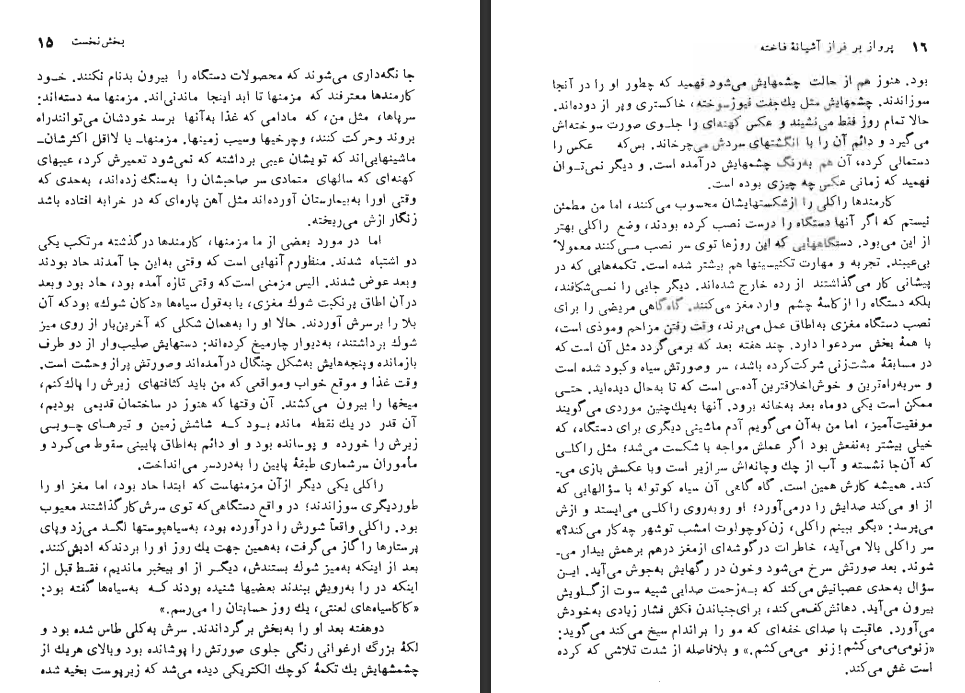 بخش نخست ۱۵
جا نگه‌داری می‌شوند که محصولات دستگاه را بیرون بدنام نکنند. خـود
کارمندها معترفند که مزمنها تا ابد اینجا ماندنی‌اند. مزمنها سه دسته‌اند:
سرپاها، مثل من، که مادامی که غذا به‌آنها برسد خودشان می‌توانند راه
بروند وحرکت کنند، وچرخیها وسیب زمینیها. مزمنهاـ یا لااقل اکثرشان‌ـ
ماشینهایی‌اند که تویشان عیبی برداشته که نمی‌شود تعمیرش کرد، عیبهای
کهنه‌ای که سالهای متمادی سر صاحبشان را به‌سنگ زده‌اند، به‌حدی که
وقتی اورا به‌بیمارستان آورده‌اند مثل آهن پاره‌ای که در خرابه افتاده باشد
زنگار ازش می‌ریخته.
اما در مورد بعضی از ما مزمنها، کارمندها درگذشته مرتکب یکی
دو اشتباه شدند. منظورم آنهایی است که وقتی به‌این جا آمدند حاد بودند
وبعد عوض شدند. الیس مزمنی است‌که وقتی تازه آمده بود، حاد بود وبعد
درآن اطاق پرنکبت شوك مغزی، یا به‌قول سیاه‌ها «دکان شوك» بودکه آن
بلا را برسرش آوردند. حالا او را به‌همان شکلی که آخرین‌بار از روی میز
شوك برداشتند، به‌دیوار چارمیخ کرده‌اند: دستهایش صلیب‌وار از دو طرف
بازمانده وپنجه‌هایش به‌شکل چنگال درآمده‌اند وصورتش پراز وحشت است.
وقت غذا و موقع خواب ومواقعی که من باید کثافتهای زیرش را پاك‌کنم،
میخها را بیرون می‌کشند. آن وقتها که هنوز در ساختمان قدیمی بودیم،
آن قدر در یك نقطه مانده بـود کـه شاشش زمین و تیرهـای چـوبـی
زیرش را خورده و پوسانده بود و او دائم به‌اطاق پایینی سقوط می‌کرد و
مأموران سرشماری طبقهٔ پایین را به‌دردسر می‌انداخت.
راکلی یکی دیگر ازآن مزمنهاست که ابتدا حاد بود، اما مغز او را
طوردیگری سوزاندند؛ در واقع دستگاهی‌که توی سرش‌کار گذاشتند معیوب
بود. راکلی واقعاً شورش را درآورده بود، به‌سیاهپوستها لگـد می‌زد وپای
پرستارها را گاز می‌گرفت، به‌همین جهت یك روز او را بردندکه ادبش‌کنند.
بعد از اینکه به‌میز شوك بستندش، دیگـر از او بیخبر ماندیم، فقـط قبل از
اینکه در را به‌رویش ببندند بعضیها شنیده بودند کـه به‌سیاه‌ها گفته بود:
«کاکاسیاه‌های لعنتی، یك روز حسابتان را می‌رسم.»
دوهفته بعد او را به‌بخش برگرداندند. سرش به‌کلی طاس شده بود و
لکهٔ بزرگ ارغوانی رنگی جلوی صورتش را پوشانده بود وبالای هریك از
چشمهایش یك تکمهٔ کوچك الکتریکی دیده می‌شد که زیرپوست بخیه شده
۱۶ پرواز بر فراز آشیانهٔ فاخته
بود. هنوز هم از حالت چشمهایش می‌شود فهمید که چطور او را در آنجا
سوزاندند. چشمهایش مثل یك‌جفت فیوزسوخته، خاکستری وپر از دوده‌اند.
حالا تمام روز فقط می‌نشیند و عکس کهنه‌ای را جلـوی صورت سوخته‌اش
می‌گیرد و دائم آن را با انگشتهای سردش می‌چرخاند. بس‌که عکس را
دستمالی کرده، آن هم به‌رنگ چشمهایش درآمده است. و دیگر نمی‌تـوان
فهمید که زمانی عکس چه چیزی بوده است.
کارمندها راکلی را ازشکستهایشان محسوب می‌کنند، اما من مطمئن
نیستم که اگر آنها دستگاه را درست نصب کرده بودند، وضع راکلی بهتر
از این می‌بود. دستگاههایی که این روزها توی سر نصب می‌کنند معمولاً
بی‌عیبند. تجربه و مهارت تکنیسینها هم بیشتر شده است. تکمه‌هایی که در
پیشانی کار می‌گذاشتند از رده خارج شده‌اند. دیگر جایی را نمـی‌شکافند،
بلکه دستگاه را ازکاسهٔ چشم وارد مغز می‌کنند. گاه‌گاهی مریضی را برای
نصب دستگاه مغزی به‌اطاق عمل می‌برند، وقت رفتن مزاحم وموذی است،
با همهٔ بخش سردعوا دارد. چند هفته بعد که برمی‌گردد مثل آن است که
در مسابقهٔ مشت‌زنی شرکت‌کرده باشد، سر وصورتش سیاه وکبود شده است
و سربه‌راه‌ترین و خوش‌اخلاقترین آدمـی است که تا به‌حال دیده‌اید. حتـی
ممکن است یکی دوماه بعد به‌خانه برود. آنها به‌یك‌چنین موردی می‌گویند
موفقیت‌آمیز، اما من به‌آن می‌گویم آدم ماشینی دیگری برای دستگاه، که
خیلی بیشتر به‌نفعش بود اگر عملش مواجه با شکست می‌شد؛ مثل راکلـی
که آن‌جا نشسته و آب از چك وچانه‌اش سرازیر است وبا عکسش بازی می‌ـ
کند. همیشه کارش همین است. گاه گاهی آن سیاه کوتوله با سؤالهایی که
از او می‌کند صدایش را درمی‌آورد؛ او روبه‌روی راکلی می‌ایستد و ازش
می‌پرسد: «بگو ببینم راکلی، زن‌کوچولوت امشب توشهر چه‌کار می‌کند؟»
سر راکلی بالا می‌آید، خاطرات درگوشه‌ای ازمغز درهم برهمش بیدار می‌ـ
شوند. بعد صورتش سرخ می‌شود وخون در رگهایش به‌جوش می‌آید. ایـن
سؤال به‌حدی عصبانیش می‌کند که بـه‌زحمت صدایی شبیه سوت ازگـلویش
بیرون می‌آید. دهانش‌کف‌می‌کند، برای‌جنباندن فکش فشار زیادی به‌خودش
می‌آورد. عاقبت با صدای خفه‌ای که مو را براندام سیخ می‌کند می‌گوید:
«زنومی‌می‌می‌کشم! زنو می‌می‌کشم.» و بلافاصله از شدت تلاشی که کرده
است غش می‌کند.